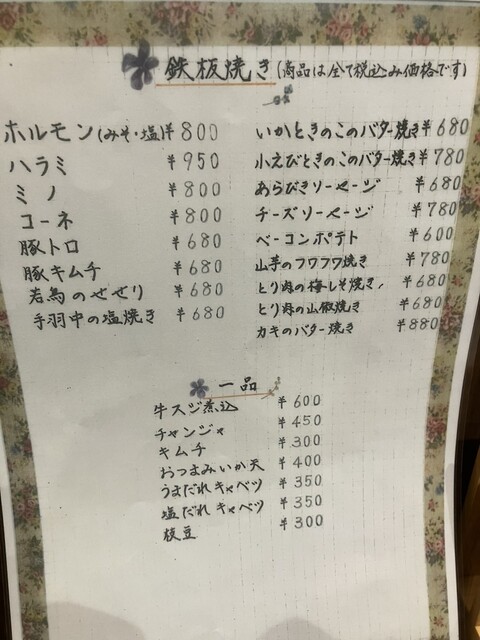 鉄板焼き(商品は全て税込み価格です)
ホルモン(みそ・塩)¥800
ハラミ ¥950
ミノ ¥800
コーネ ¥800
豚トロ ¥680
豚キムチ ¥680
若鳥のせせり ¥680
手羽中の塩焼き ¥680
いかときのこのバター焼き¥680
小えびときのこのバター焼き¥780
あらびきソーセージ ¥680
チーズソーセージ ¥780
ベーコンポテト ¥600
山芋のフワフワ焼き ¥780
とり肉の梅しそ焼き ¥680
とり肉の山椒焼き ¥680
カキのバター焼き ¥880
一品
牛スジ煮込 ¥600
チャンジャ ¥450
キムチ ¥300
おつまみいか天 ¥400
うまだれキャベツ ¥350
塩だれキャベツ ¥350
枝豆 ¥300